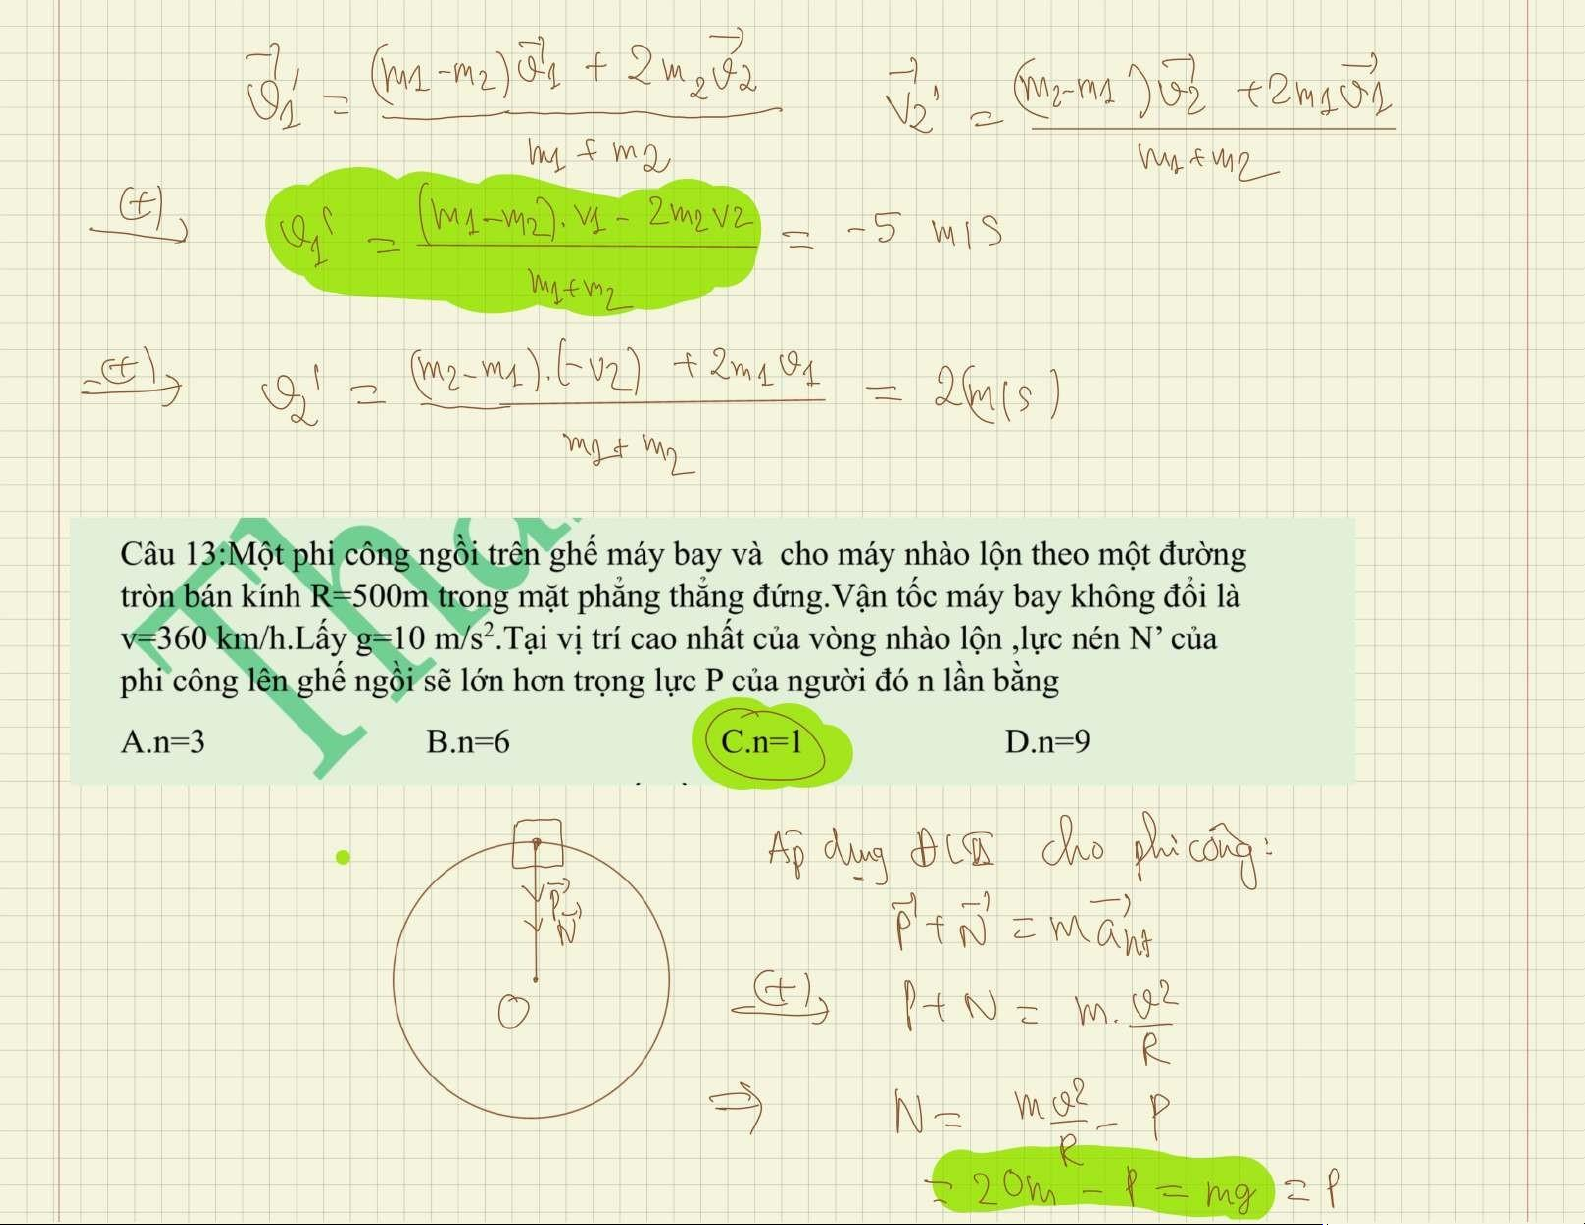 v⃗1' = ((m1-m2)v⃗1 + 2m2v⃗2)/(m1+m2)    v⃗2' = ((m2-m1)v⃗2 + 2m1v⃗1)/(m1+m2)
(+)→ v1' = ((m1-m2).v1 - 2m2v2)/(m1+m2) = -5 m/s
(+)→ v2' = ((m2-m1).(-v2) + 2m1v1)/(m1+m2) = 2(m/s)
Tha
Câu 13:Một phi công ngồi trên ghế máy bay và cho máy nhào lộn theo một đường
tròn bán kính R=500m trong mặt phẳng thẳng đứng.Vận tốc máy bay không đổi là
v=360 km/h.Lấy g=10 m/s².Tại vị trí cao nhất của vòng nhào lộn ,lực nén N’ của
phi công lên ghế ngồi sẽ lớn hơn trọng lực P của người đó n lần bằng
A.n=3 B.n=6 C.n=1 D.n=9
P⃗
N⃗
O
Áp dụng ĐLII cho phi công:
P⃗ + N⃗ = m a⃗ht
(+)→ P + N = m. v²/R
⇒ N = mv²/R - P
= 20m - P = mg = P